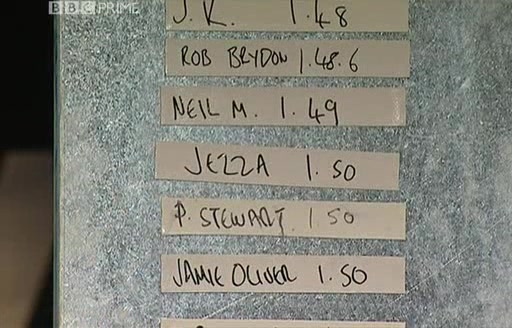 BBC PRIME
J.K. 1.48
ROB BRYDON 1.48.6
NEIL M. 1.49
JEZZA 1.50
P. STEWART. 1 50
JAMIE OLIVER 1.50